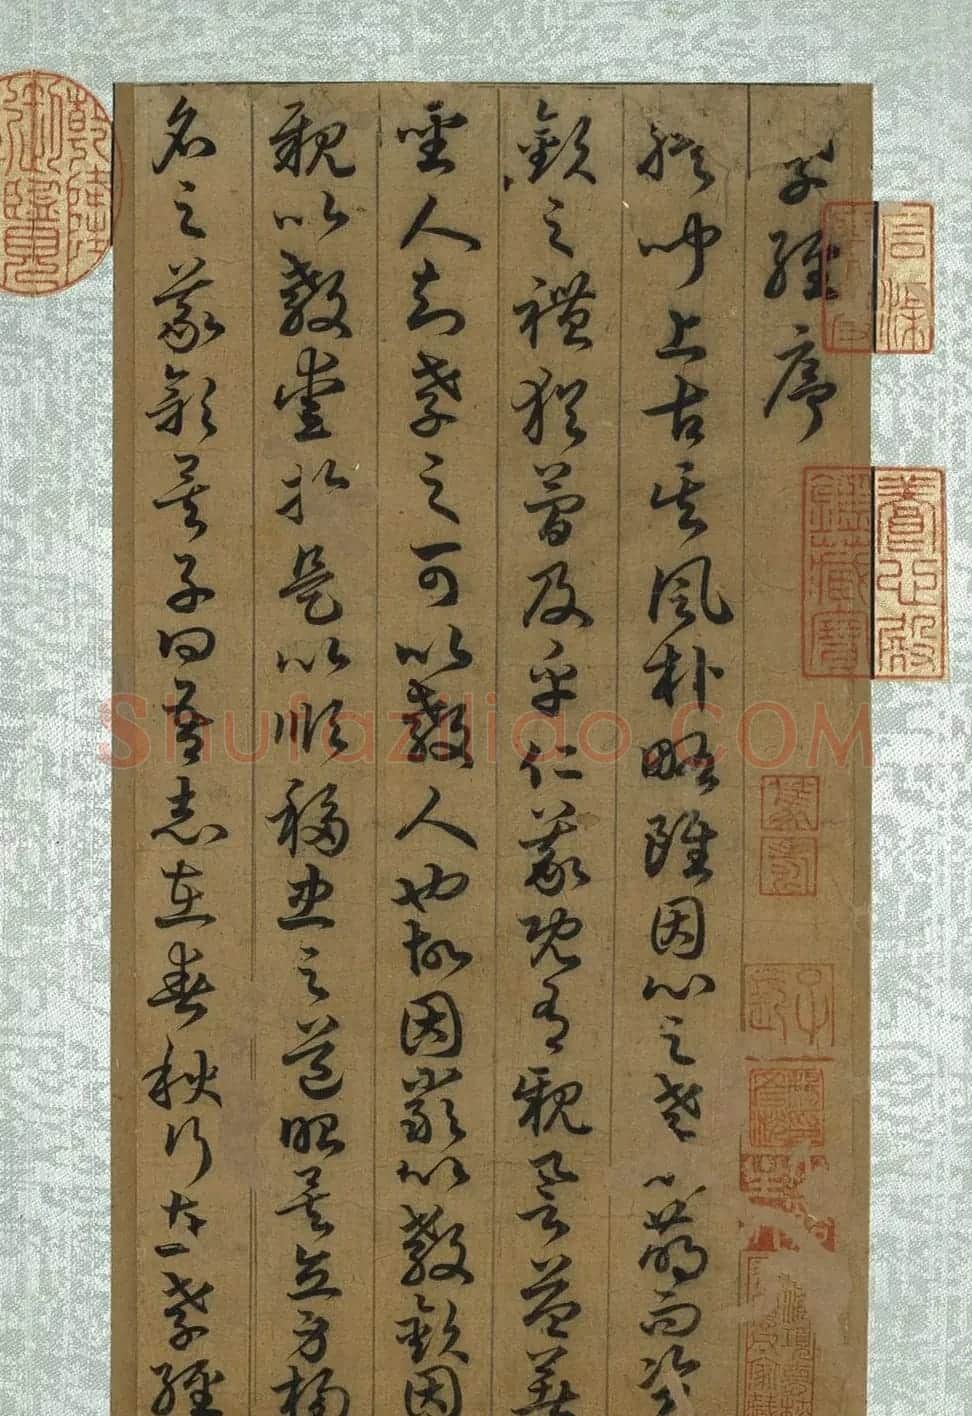 孝經序
朕聞上古其風朴略雖因心之孝以萌而資
敬之禮猶簡及乎仁義既有親譽益著
聖人知孝之可以教人也故因嚴以教敬因
親以教愛於是以順移忠之道昭矣立身揚
名之義彰矣子曰吾志在春秋行在孝經
養心殿鑑藏寶
Shufaziliao.COM